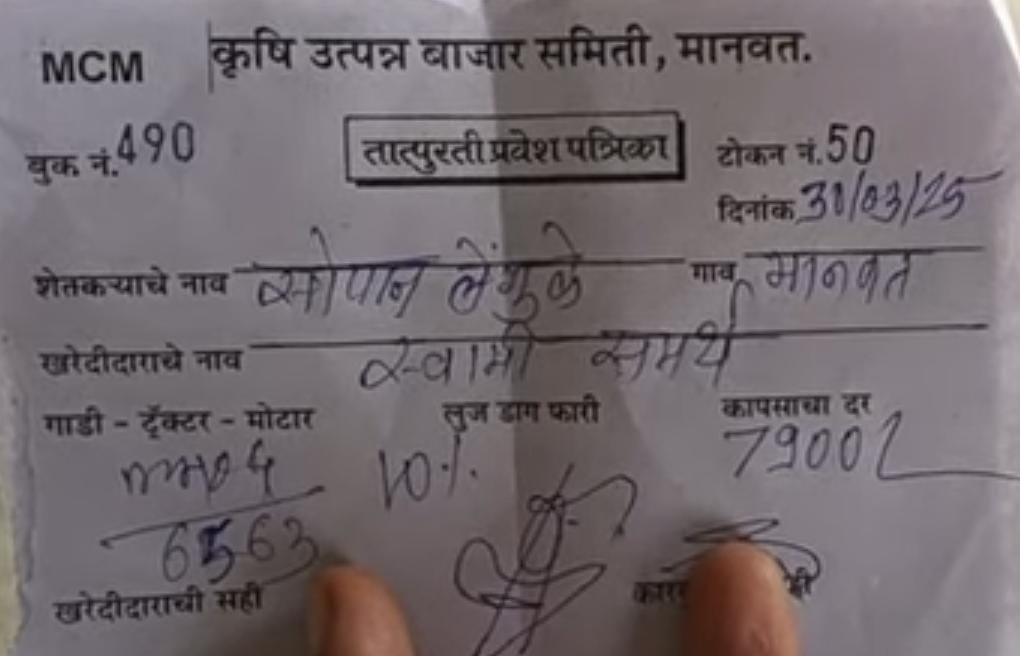 MCM कृषि उत्पन्न बाजार समिती, मानवत.
बुक नं. 490 तात्पुरती प्रवेश पत्रिका टोकन नं. 50
दिनांक 30/03/25
शेतकऱ्याचे नाव सोपान लेंगुळे गाव मानवत
खरेदीदाराचे नाव स्वामी समर्थ
गाडी - ट्रॅक्टर - मोटार लुज डाग फारी कापसाचा दर
10% 7900
6563
खरेदीदाराची सही